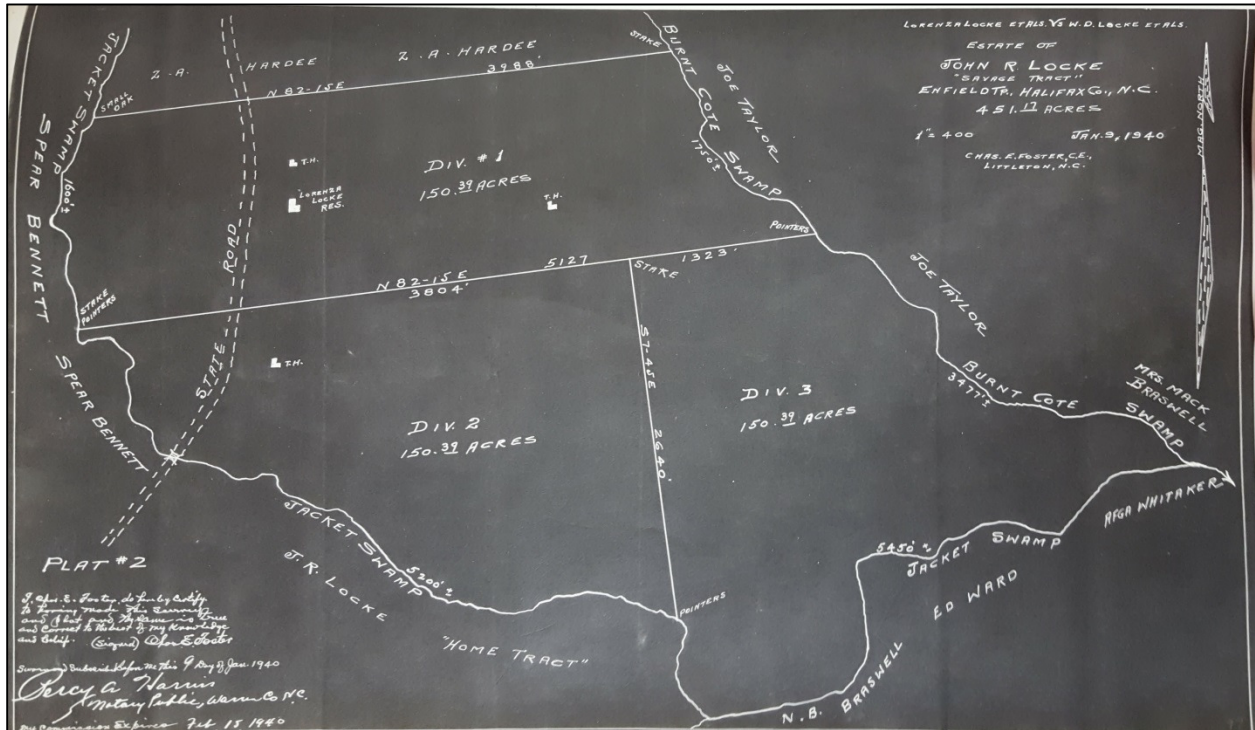 LORENZA LOCKE ET ALS. VS W. D. LOCKE ET ALS.
ESTATE OF
JOHN R LOCKE
"SAVAGE TRACT"
ENFIELD TP. HALIFAX CO., N.C.
451.17 ACRES
1" = 400 JAN. 9, 1940
CHAS. E. FOSTER, C.E.,
LITTLETON, N.C.
MAG. NORTH
JACKET SWAMP
1600'±
SPEAR BENNETT
SMALL OAK
Z. A. HARDEE
Z. A. HARDEE
N 82-15 E
3988'
STAKE
BURNT COTE SWAMP
1750'±
JOE TAYLOR
T.H.
LORENZA
LOCKE
RES.
DIV. #1
150.39 ACRES
T.H.
POINTERS
STATE ROAD
STAKE
POINTERS
N 82-15 E
3804'
5127
STAKE
1323'
JOE TAYLOR
T.H.
SPEAR BENNETT
DIV. 2
150.39 ACRES
S 7-45 E 2640'
DIV. 3
150.39 ACRES
BURNT COTE SWAMP
3477'±
MRS. MACK
BRASWELL
AFGA WHITAKER
JACKET SWAMP
5200'±
J. R. LOCKE
"HOME TRACT"
POINTERS
5450'±
JACKET SWAMP
ED WARD
N. B. BRASWELL
PLAT #2
I, Chas. E. Foster, do hereby Certify
to having made this Survey
and Plat and the same is true
and Correct to the best of my Knowledge
and belief. (Signed) Chas E. Foster
Sworn and Subscribed before me this 9 Day of Jan. 1940
Percy A Harris
Notary Public, Warren Co N.C.
My Commission Expires Feb 15 1940